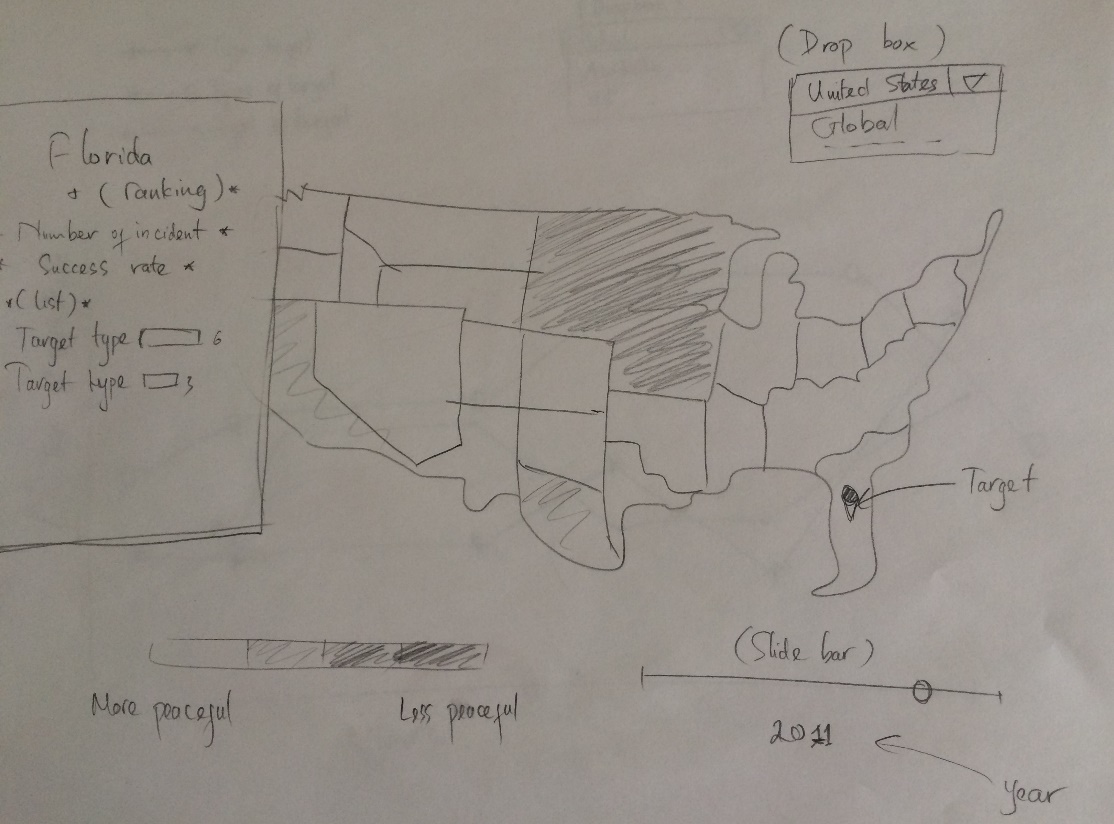 (Drop box)
United States
Global
Florida
(ranking)*
- Number of incident *
* Success rate *
*(list)*
Target type 6
Target type 3
Target
More peaceful
Less peaceful
(Slide bar)
2011
year